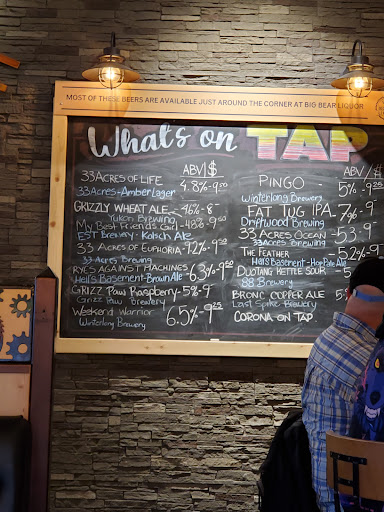 MOST OF THESE BEERS ARE AVAILABLE JUST AROUND THE CORNER AT BIG BEAR LIQUOR
What's on TAP
ABV | $
33 ACRES OF LIFE 4.8% - 9.00
33 Acres - Amber Lager
GRIZZLY WHEAT ALE - 4.6% - 8
Yukon Brewing
My Best Friends Girl - 4.8% - 9.50
EST Brewery - Kolsch Ale
33 ACRES OF EUPHORIA - 9.2% - 9.00
33 Acres Brewing
RYES AGAINST MACHINES 6.3% - 9.50
Hell's Basement - Brown Ale
GRIZZ PAW Raspberry - 5% - 9
Grizz Paw Brewery
Weekend Warrior 6.5% - 9.25
Winterlong Brewery
ABV / $
PINGO - 5% - 9.25
Winterlong Brewery
FAT TUG IPA - 7% - 9
Driftwood Brewing
33 ACRES OCEAN - 5.3 - 9
33 Acres Brewing
THE FEATHER - 5.2% - 9
Hell's Basement - Hop Pale Ale
DUOTANG KETTLE SOUR 5
88 Brewery
BRONC COPPER ALE 5
Last Spike Brewery
CORONA ON TAP